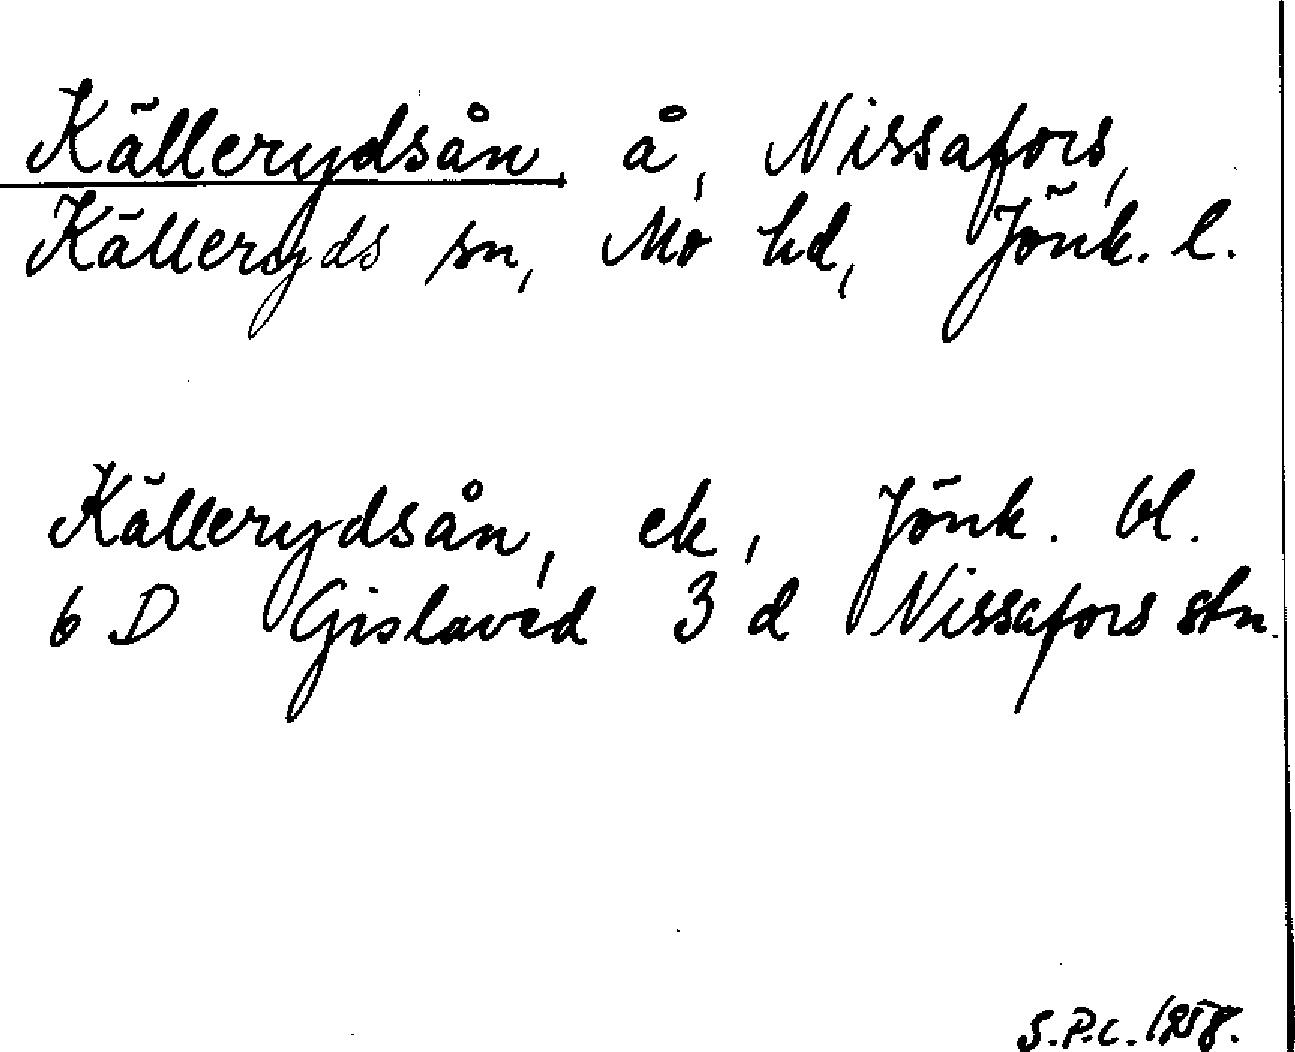 Källerydsån, å, Nissafors,
Källeryds sn, Mo hd, Jönk. l.
Källerydsån, ek, Jönk. bl.
6 D Gislaved 3 d Nissafors stn.
S.P.C. 1958.